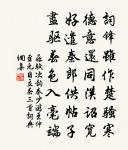 詞鋒雖作楚騷寒
德意還同漢詔寬
好遣秦郎供帖子
盡驅春色入毫端
蘇軾次韻秦少游王仲
至元日立春三首詞典
網集